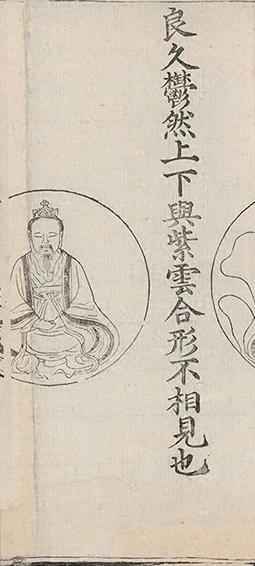 良久鬱然上下與紫雲合形不相見也